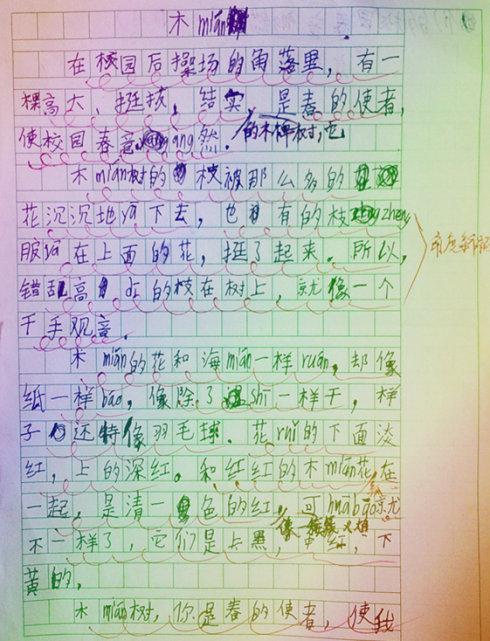 木mián
在校园后操场的角落里，有一
棵高大、挺拔，结实，是春的使者，
使校园春意àng然．的木棉树，它
木mián树的枝被那么多的
花沉沉地ya下去，也有的枝zheng
服ya在上面的花，挺了起来．所以，
错乱高的枝在树上，就像一个
千手观音．
木mián的花和海mián一样ruǎn，却像
纸一样báo，像除了shī一样干，样
子还特像羽毛球．花ruǐ的下面淡
红，上的深红。和红红的木mián花在
一起，是清一色的红，可huā bāo就尤
不一样了，它们是上黑，中红，下
黄的，
木mián树，你是春的使者，使我